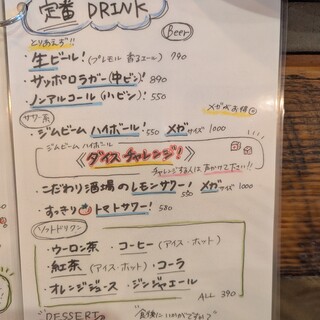 定番 DRINK
とりあえず!!
Beer
・生ビール!(プレモル 香るエール) 790
・サッポロラガー(中ビン)! 890
・ノンアルコール(小ビン)! 550
サワー系
メガがお得
・ジムビーム ハイボール! 550 メガサイズ 1000
ジムビームハイボール
《ダイスチャレンジ!》
チャレンジする人は声かけて下さい!!
・こだわり酒場のレモンサワー! 550 メガサイズ 1000
・すっきりトマトサワー! 580
ソフトドリンク
・ウーロン茶 ・コーヒー(アイス・ホット)
・紅茶(アイス・ホット)・コーラ
・オレンジジュース ・ジンジャエール
ALL 390
DESSERT
"食後にいかがですか?"